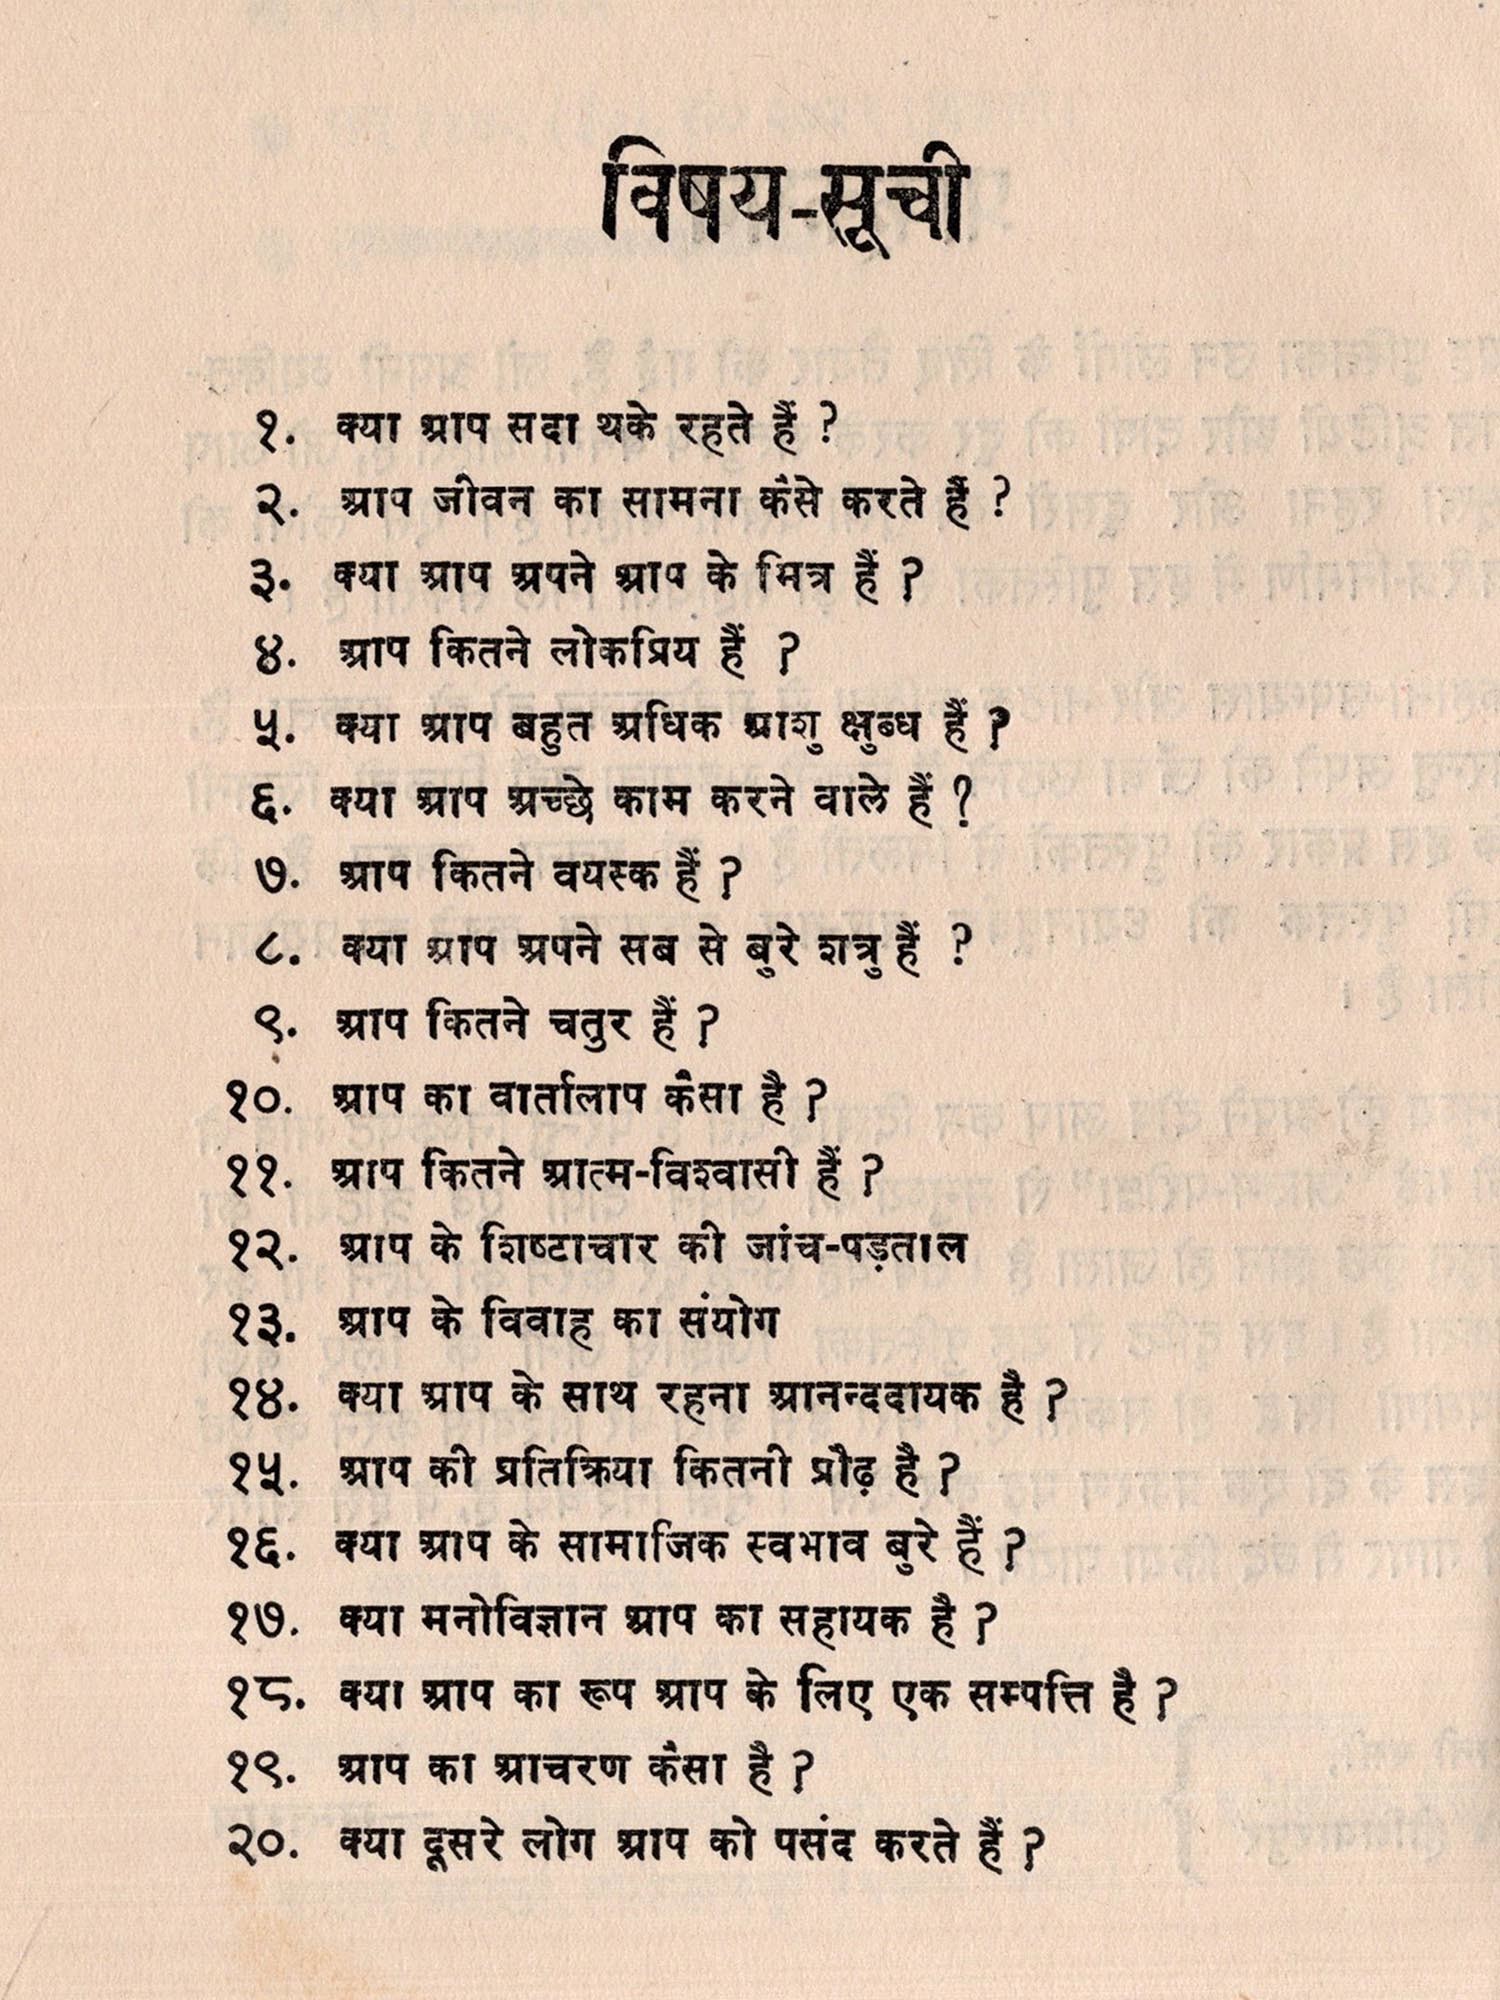 विषय-सूची
१. क्या आप सदा थके रहते हैं ?
२. आप जीवन का सामना कैसे करते हैं ?
३. क्या आप अपने आप के मित्र हैं ?
४. आप कितने लोकप्रिय हैं ?
५. क्या आप बहुत अधिक आशु क्षुब्ध हैं ?
६. क्या आप अच्छे काम करने वाले हैं ?
७. आप कितने वयस्क हैं ?
८. क्या आप अपने सब से बुरे शत्रु हैं ?
९. आप कितने चतुर हैं ?
१०. आप का वार्तालाप कैसा है ?
११. आप कितने आत्म-विश्वासी हैं ?
१२. आप के शिष्टाचार की जांच-पड़ताल
१३. आप के विवाह का संयोग
१४. क्या आप के साथ रहना आनन्ददायक है ?
१५. आप की प्रतिक्रिया कितनी प्रौढ़ है ?
१६. क्या आप के सामाजिक स्वभाव बुरे हैं ?
१७. क्या मनोविज्ञान आप का सहायक है ?
१८. क्या आप का रूप आप के लिए एक सम्पत्ति है ?
१९. आप का आचरण कैसा है ?
२०. क्या दूसरे लोग आप को पसंद करते हैं ?